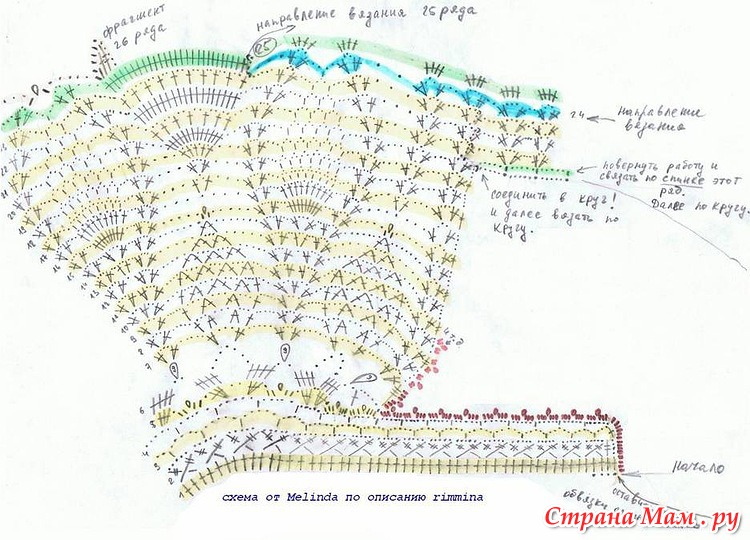 фрагмент
26 ряда
направление вязания 26 ряда
25
24
направление
вязания
повернуть работу и
связать по спинке этот
ряд.
Далее по кругу.
соединить в круг!
и далее вязать по
кругу.
7
6
5
4
3
2
1
начало
схема от Melinda по описанию rimmina
Страна Мам.ру